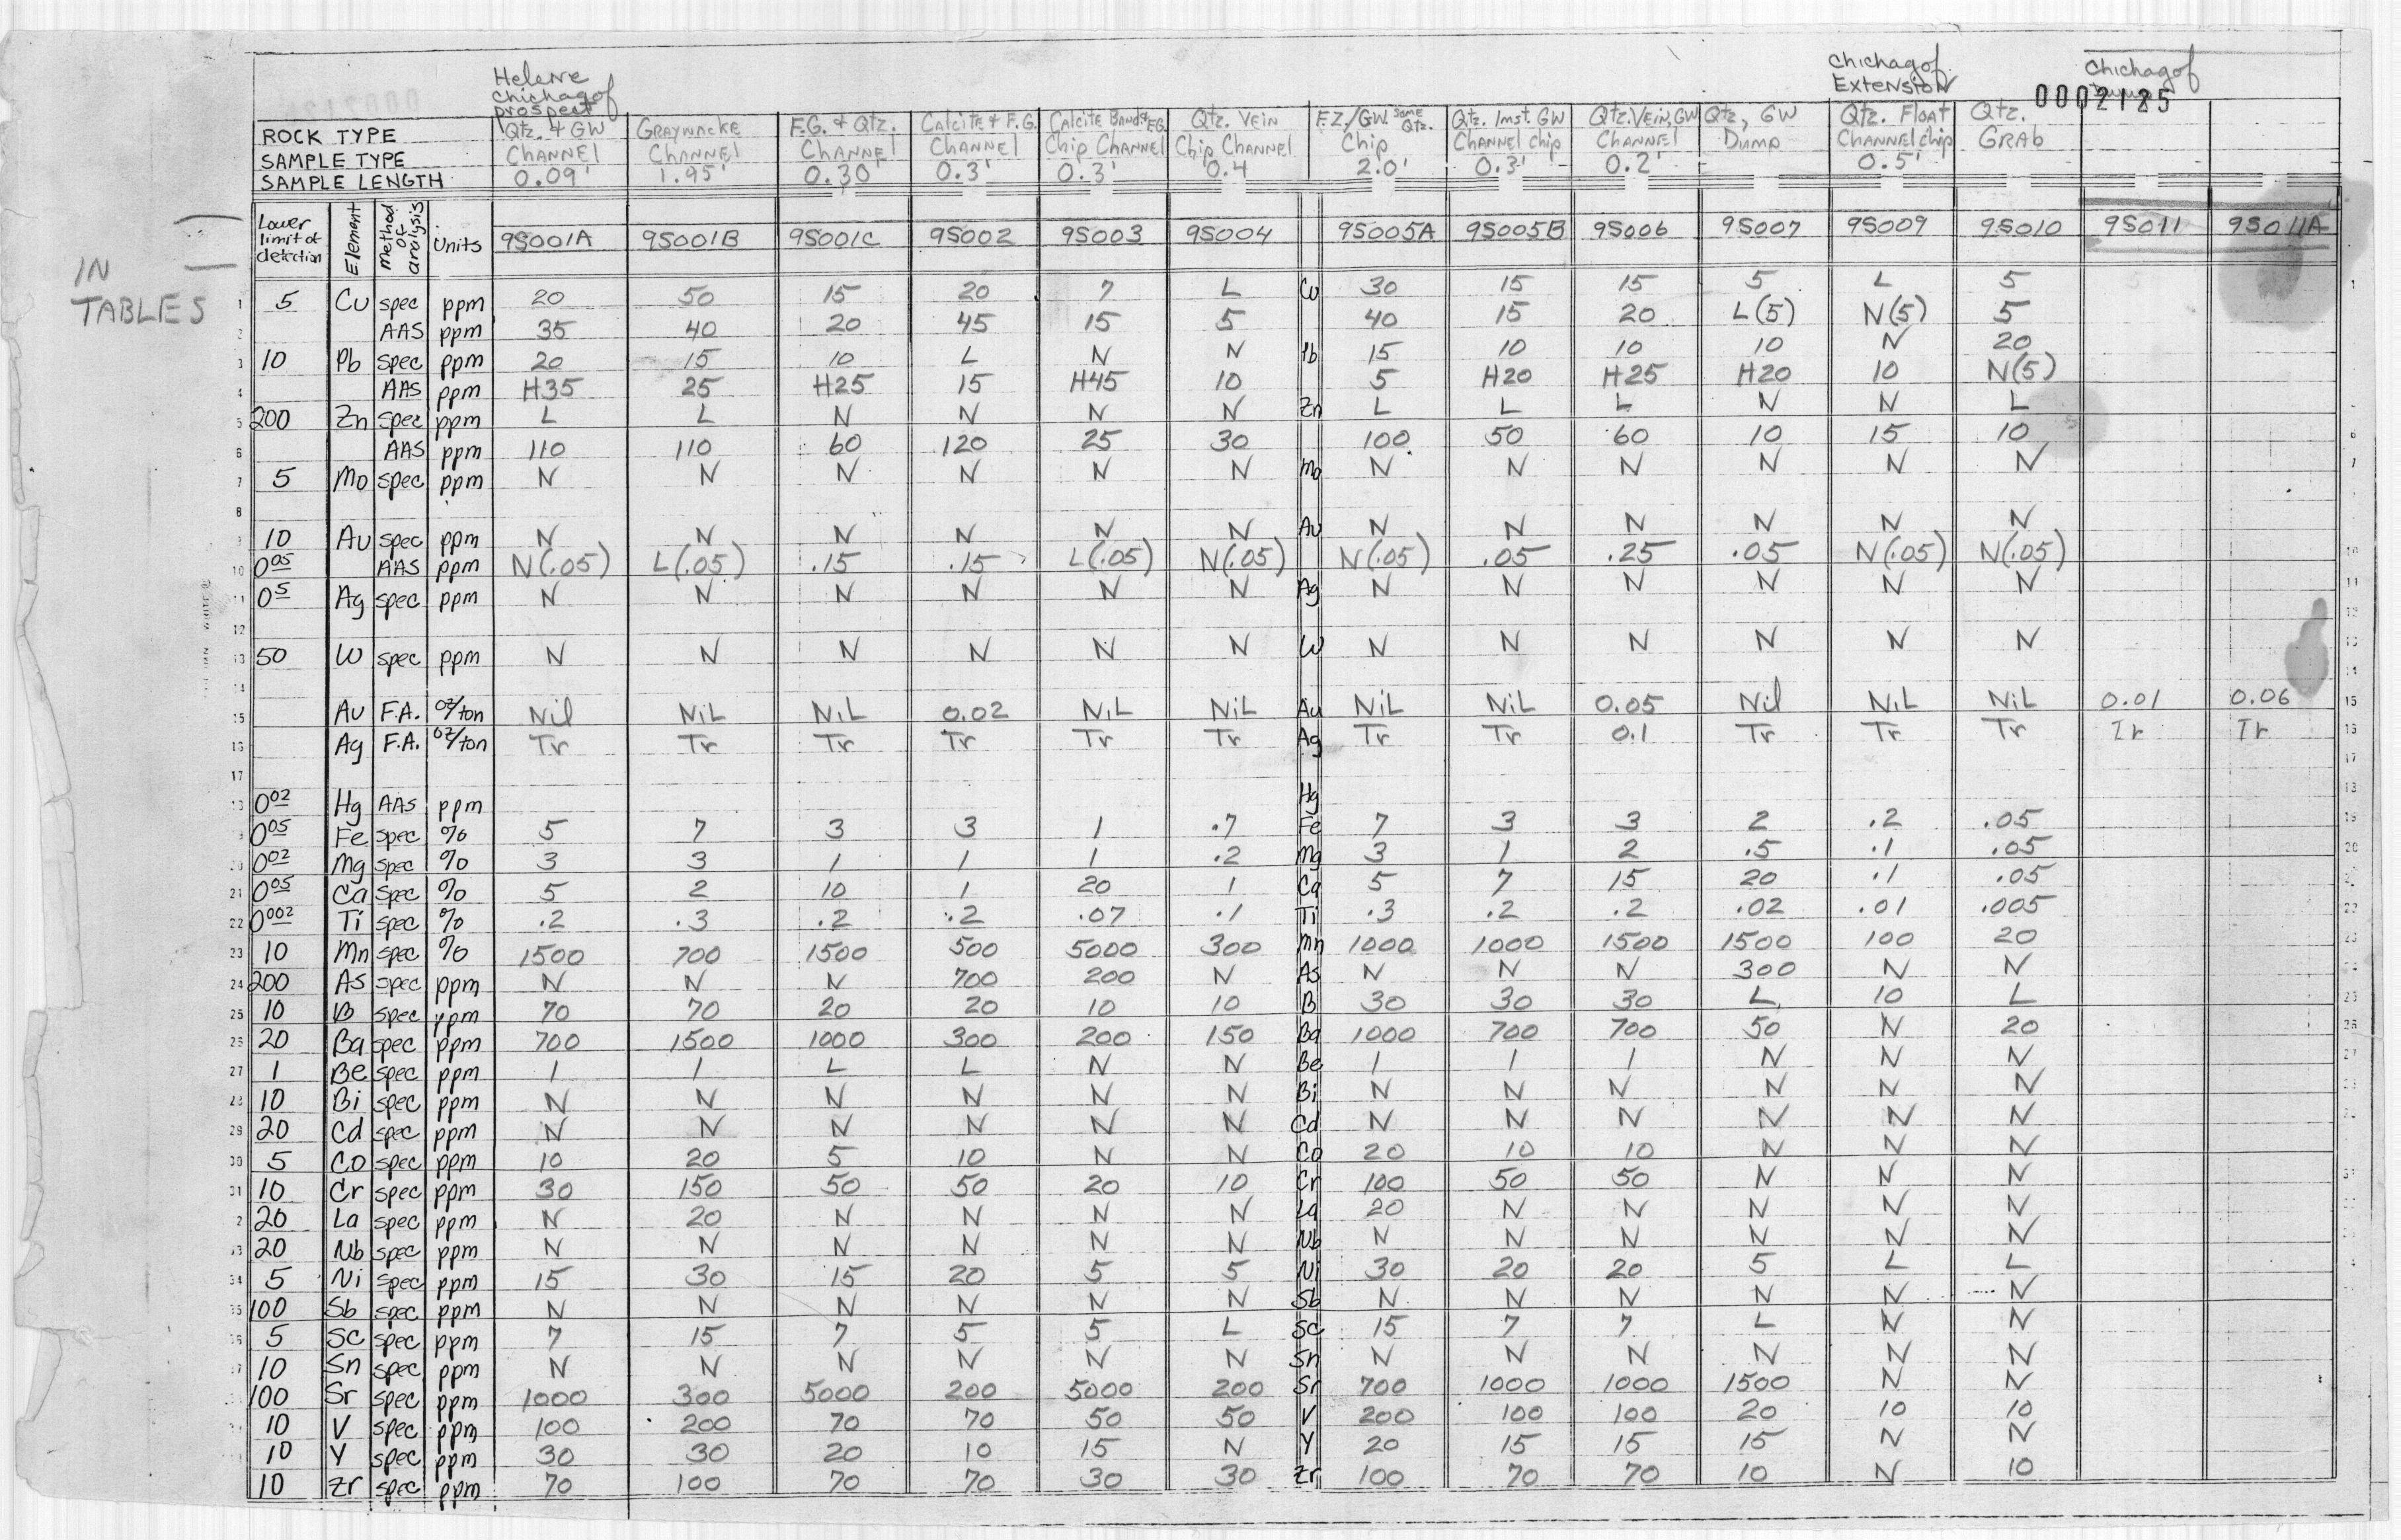 Helene Chichagof prospect
Chichagof Extension
Chichagof
0002125
ROCK TYPE Qtz. & GW GRAYWACKE F.G. & Qtz. CALCITE & F.G. CALCITE Band & F.G. Qtz. VEIN F.Z./GW. SOME Qtz. Qtz. Inst. GW Qtz. VEIN, GW Qtz, GW Qtz. FLOAT Qtz.
SAMPLE TYPE CHANNEL CHANNEL CHANNEL CHANNEL Chip CHANNEL Chip CHANNEL Chip CHANNEL chip CHANNEL DUMP CHANNEL chip GRAb
SAMPLE LENGTH 0.09' 1.95' 0.30' 0.3' 0.3' 0.4 2.0' 0.3' 0.2' 0.5'
Lower limit of detection Element Method of analysis Units 9S001A 9S001B 9S001C 9S002 9S003 9S004 9S005A 9S005B 9S006 9S007 9S009 9S010 9S011 9S011A
IN
TABLES
1 5 Cu spec ppm 20 50 15 20 7 L Cu 30 15 15 5 L 5
2 AAS ppm 35 40 20 45 15 5 40 15 20 L(5) N(5) 5
3 10 Pb spec ppm 20 15 10 L N N Pb 15 10 10 10 N 20
4 AAS ppm H35 25 H25 15 H45 10 5 H20 H25 H20 10 N(5)
5 200 Zn spec ppm L L N N N N Zn L L L N N L
6 AAS ppm 110 110 60 120 25 30 100 50 60 10 15 10 6
7 5 Mo spec ppm N N N N N N Mo N N N N N N 7
8
9 10 Au spec ppm N N N N N N Au N N N N N N
10 0.05 AAS ppm N(.05) L(.05) .15 .15 L(.05) N(.05) N(.05) .05 .25 .05 N(.05) N(.05) 10
11 0.5 Ag spec ppm N N N N N N Ag N N N N N N 11
12
13 50 W spec ppm N N N N N N W N N N N N N
14 14
15 Au F.A. oz/ton Nil NiL NiL 0.02 NiL NiL Au NiL NiL 0.05 Nil NiL NiL 0.01 0.06 15
16 Ag F.A. oz/ton Tr Tr Tr Tr Tr Tr Ag Tr Tr 0.1 Tr Tr Tr Tr Tr 16
17 17
18 0.02 Hg AAS ppm Hg 18
19 0.05 Fe spec % 5 7 3 3 1 .7 Fe 7 3 3 2 .2 .05 19
20 0.02 Mg spec % 3 3 1 1 1 .2 Mg 3 1 2 .5 .1 .05 20
21 0.05 Ca spec % 5 2 10 1 20 1 Ca 5 7 15 20 .1 .05
22 0.002 Ti spec % .2 .3 .2 .2 .07 .1 Ti .3 .2 .2 .02 .01 .005 22
23 10 Mn spec % 1500 700 1500 500 5000 300 Mn 1000 1000 1500 1500 100 20 23
24 200 As spec ppm N N N 700 200 N As N N N 300 N N
25 10 B spec ppm 70 70 20 20 10 10 B 30 30 30 L 10 L 25
26 20 Ba spec ppm 700 1500 1000 300 200 150 Ba 1000 700 700 50 N 20 26
27 1 Be spec ppm 1 1 L L N N Be 1 1 1 N N N 27
28 10 Bi spec ppm N N N N N N Bi N N N N N N
29 20 Cd spec ppm N N N N N N Cd N N N N N N
30 5 Co spec ppm 10 20 5 10 N N Co 20 10 10 N N N
31 10 Cr spec ppm 30 150 50 50 20 10 Cr 100 50 50 N N N 31
20 La spec ppm N 20 N N N N La 20 N N N N N
33 20 Nb spec ppm N N N N N N Nb N N N N N N
34 5 Ni spec ppm 15 30 15 20 5 5 Ni 30 20 20 5 L L
35 100 Sb spec ppm N N N N N N Sb N N N N N N
36 5 Sc spec ppm 7 15 7 5 5 L Sc 15 7 7 L N N
37 10 Sn spec ppm N N N N N N Sn N N N N N N
100 Sr spec ppm 1000 300 5000 200 5000 200 Sr 700 1000 1000 1500 N N
10 V spec ppm 100 200 70 70 50 50 V 200 100 100 20 10 10
10 Y spec ppm 30 30 20 10 15 N Y 20 15 15 15 N N
10 Zr spec ppm 70 100 70 70 30 30 Zr 100 70 70 10 N 10